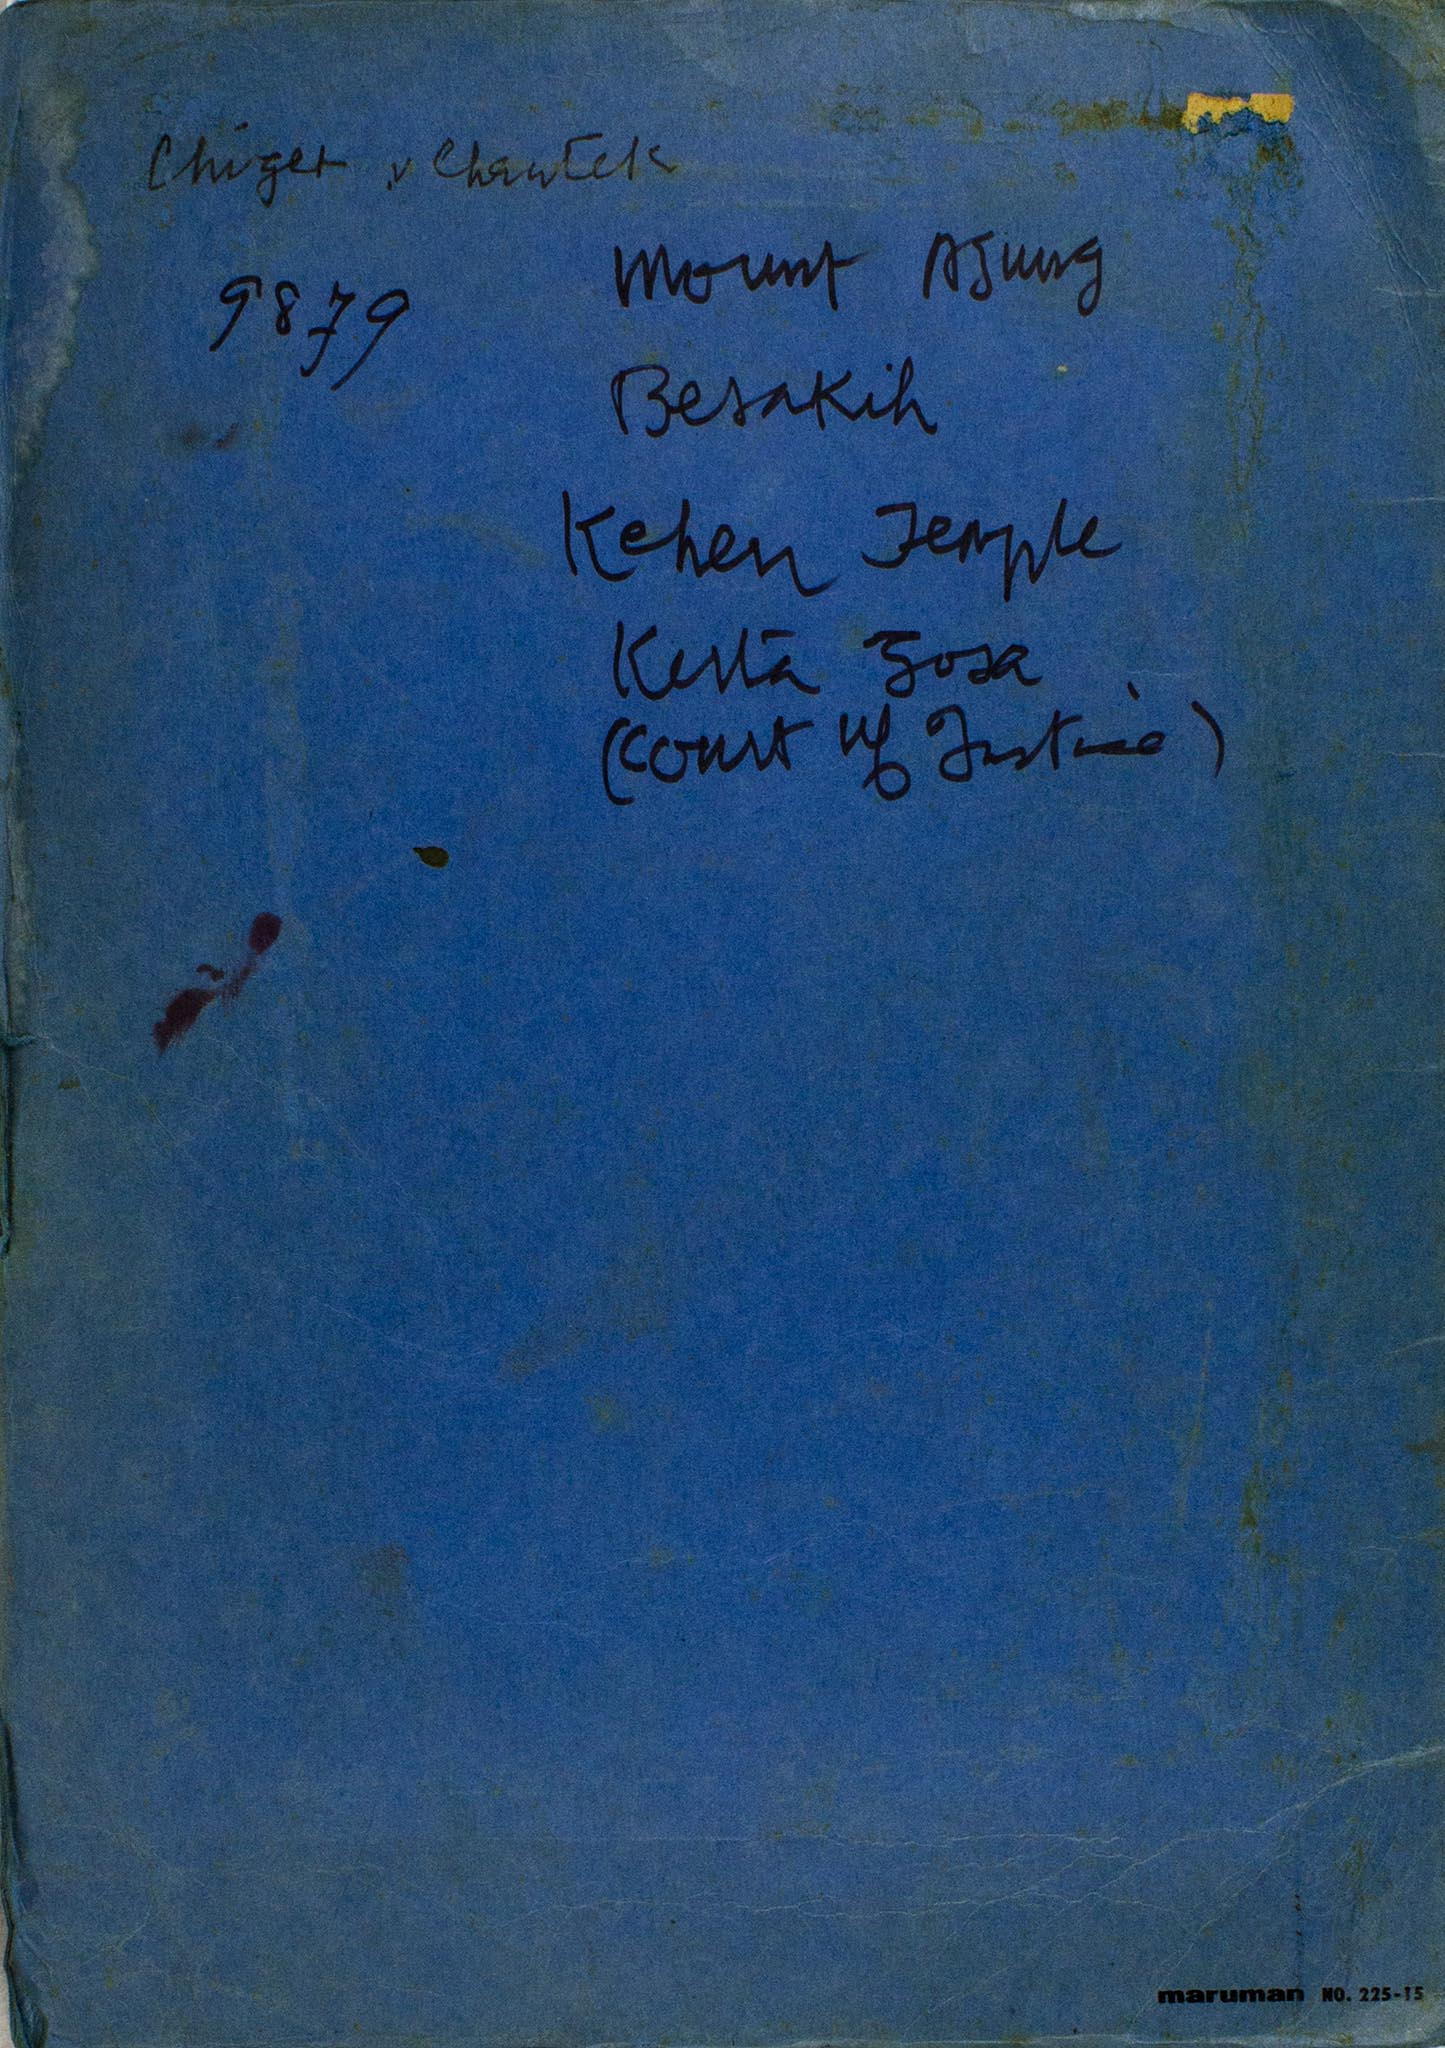 9879
Mount Agung
Besakih
Kehen Temple
Kerta Gosa
(Court of Justice)
maruman NO. 225-15